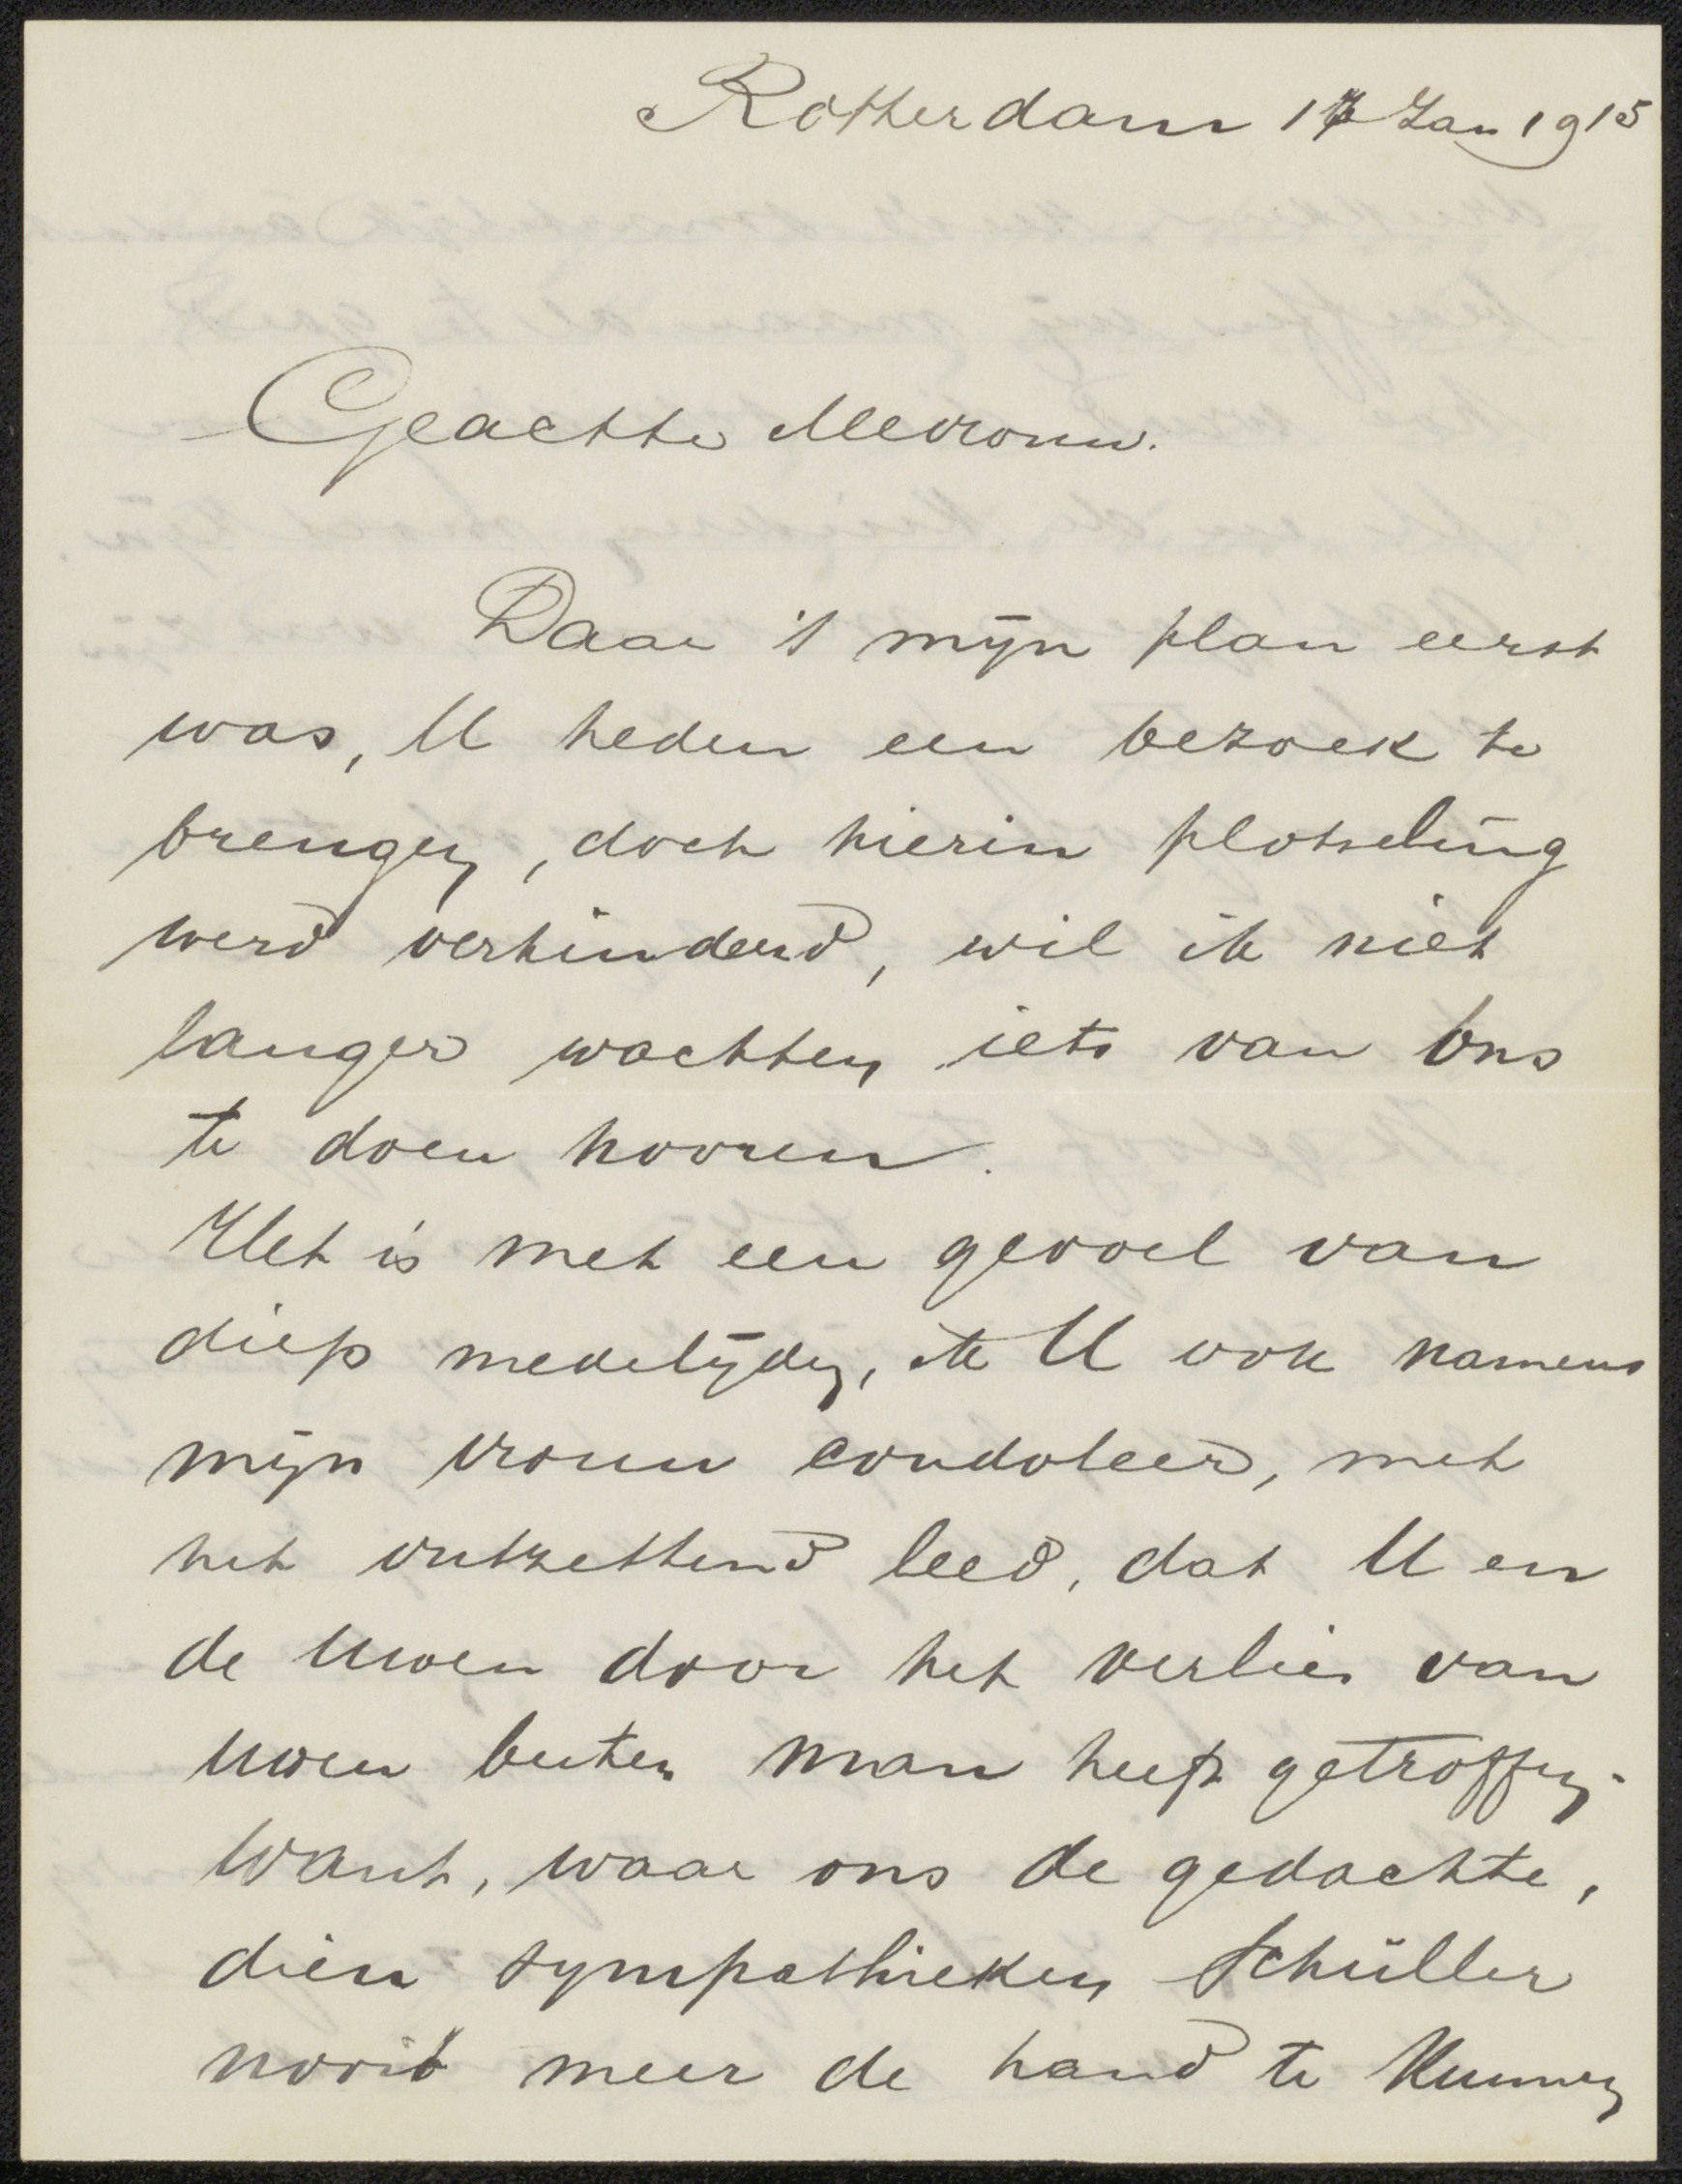 Rotterdam 17 Jan 1915
Geachte Mevrouw.
Daar 't mijn plan eerst
was, U heden een bezoek te
brengen, doch hierin plotseling
werd verhinderd, wil ik niet
langer wachten iets van ons
te doen hooren.
Het is met een gevoel van
diep medelijden, ik U ook namens
mijn vrouw condoleer, met
het ontzettend leed, dat U en
de Uwen door het verlies van
Uwen besten man heeft getroffen.
Want, waar ons de gedachte,
dien sympathieken Schüller
nooit meer de hand te kunnen